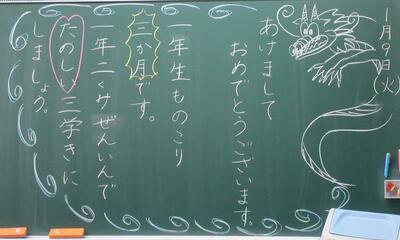 1月9日(火)
あけまして
おめでとうございます。
一年生ものこり
三か月です。
年二くみぜんいんで
たのしい三学きに
しましょう。